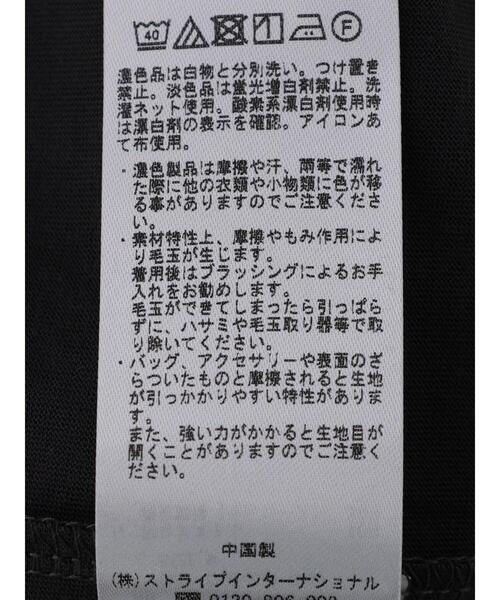 40 F
濃色品は白物と分別洗い。つけ置き
禁止。淡色品は蛍光増白剤禁止。洗
濯ネット使用。酸素系漂白剤使用時
は漂白剤の表示を確認。アイロンあ
て布使用。
・濃色製品は摩擦や汗、雨等で濡れ
た際に他の衣類や小物類に色が移
る事がありますのでご注意くださ
い。
・素材特性上、摩擦やもみ作用によ
り毛玉が生じます。
着用後はブラッシングによるお手
入れをお勧めします。
毛玉ができてしまったら引っぱら
ずに、ハサミや毛玉取り器等で取
り除いてください。
・バッグ、アクセサリーや表面のざ
らついたものと摩擦されると生地
が引っかかりやすい特性がありま
す。
また、強い力がかかると生地目が
開くことがありますのでご注意く
ださい。
中国製
(株)ストライプインターナショナル